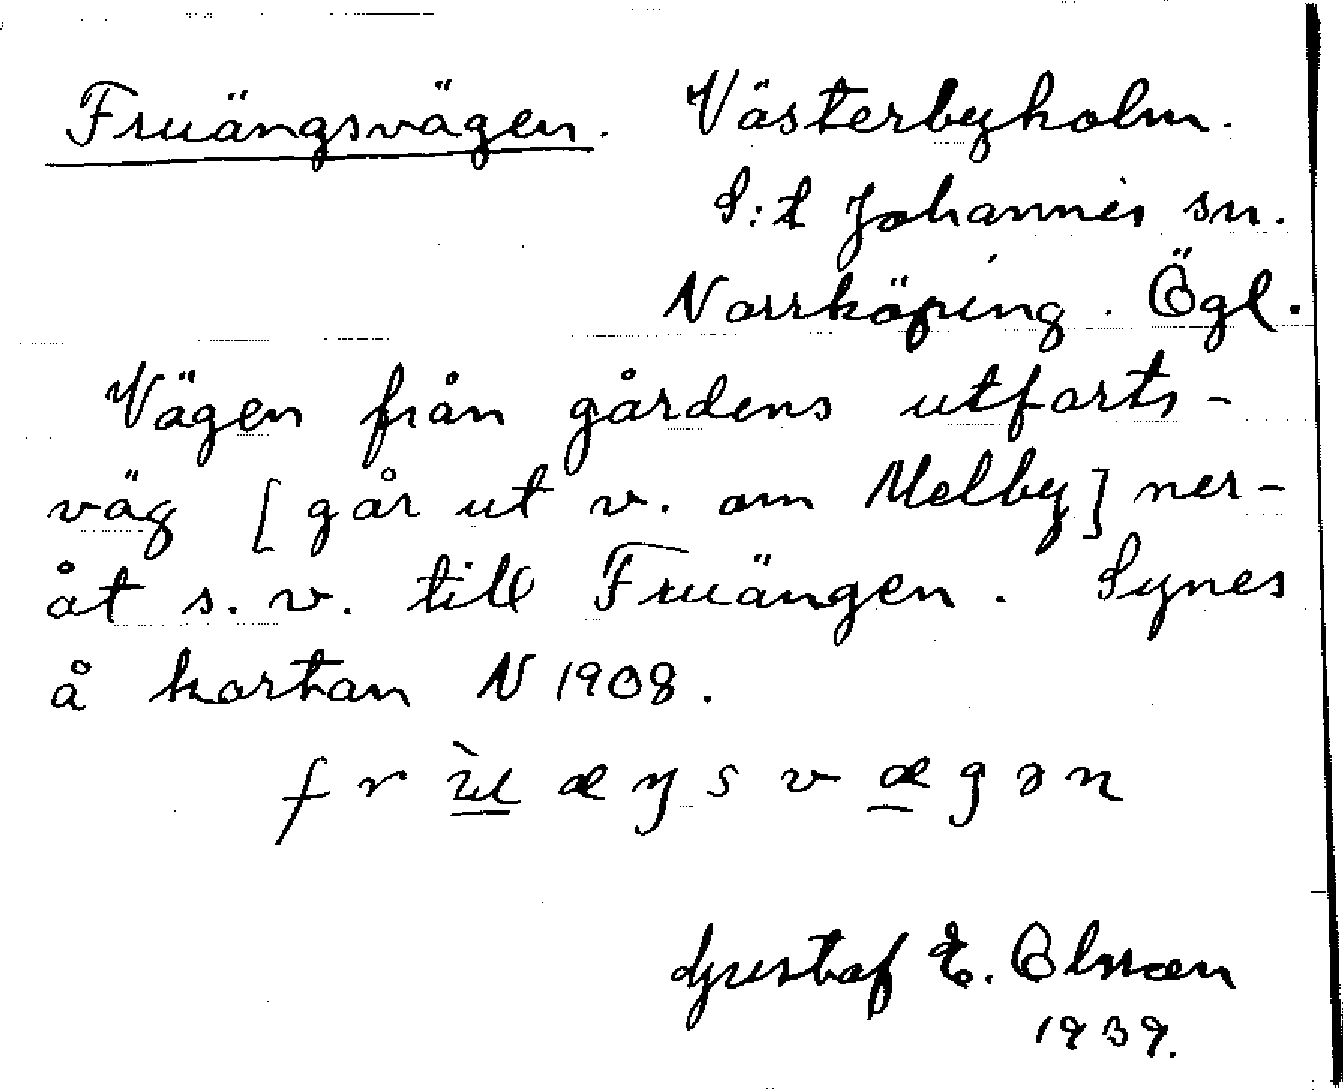 Fruängsvägen. Västerbyholm.
S:t Johannes sn.
Norrköping. Ögl.
Vägen från gårdens utfarts-
väg [går ut v. om Melby] ner-
åt s. v. till Fruängen. Synes
å kartan N 1908.
frùæŋsvægən
Gustaf E. Olsson
1939.